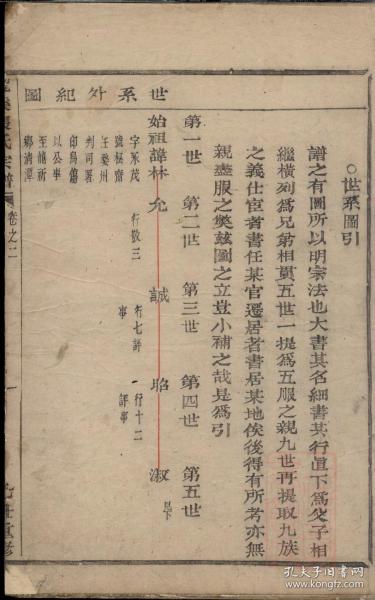 ○世系圖引
譜之有圖所以明宗法也大書其名細書其行直下為父子相
繼橫列為兄弟相貫五世一提為五服之親九世再提取九族
之義仕宦者書任某官遷居者書居某地俟後得有所考亦無
親盡服之獎茲圖之立豈小補之哉是為引
世系外紀圖
第一世 第二世 第三世 第四世 第五世
始祖諱林 允 誠 昭 淑
字永茂
號極齋
王婺州
判司署
印烏傷
以公事
至龍祈
鄉清潭
行敬三
行七評
事
行十二
評事
宗譜
卷之二
一
孔夫子旧书网